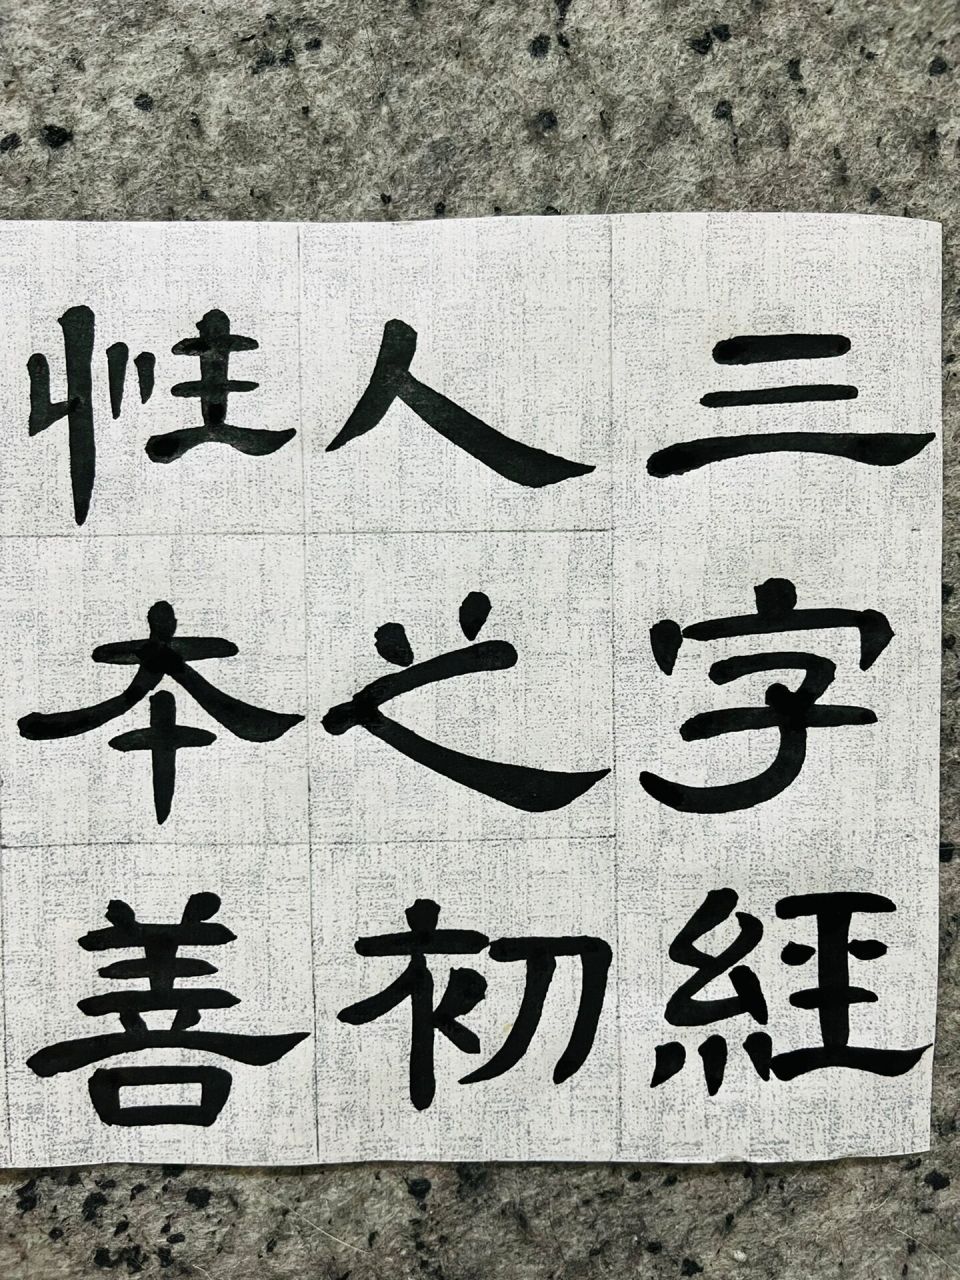 三字經
人之初
性本善